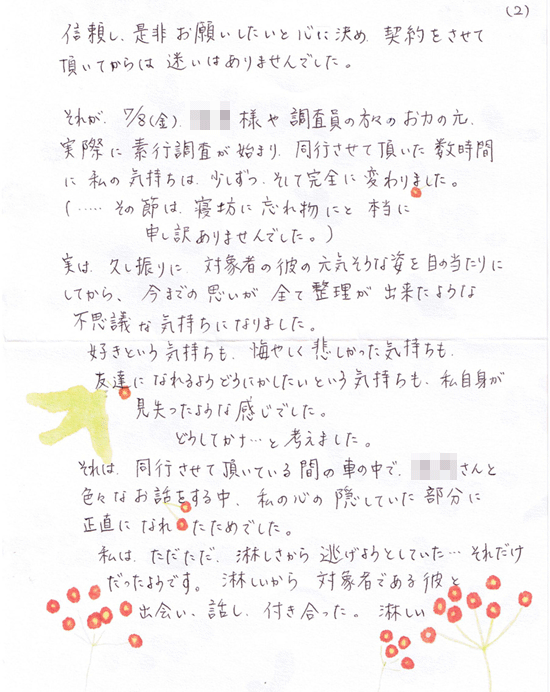 (2)
信頼し、是非お願いしたいと心に決め、契約をさせて
頂いてからは 迷いはありませんでした。
それが、7/8(金)、様や調査員の方々のお力の元、
実際に素行調査が始まり、同行させて頂いた数時間
に私の気持ちは、少しずつ、そして完全に変わりました。
(‥‥‥その節は、寝坊に忘れ物にと 本当に
申し訳ありませんでした。)
実は、久し振りに、対象者の彼の元気そうな姿を目の当たりに
してから、今までの思いが 全て整理が 出来たような
不思議な気持ちになりました。
好きという気持ちも、悔やしく悲しかった気持ちも、
友達になれるようどうにかしたいという気持ちも、私自身が
見失ったような感じでした。
どうしてかナ…と考えました。
それは、同行させて頂いている間の車の中で、さんと
色々なお話をする中、私の心の隠していた部分に
正直になれたためでした。
私は、ただただ、淋しさから逃げようとしていた…それだけ
だったようです。淋しいから 対象者である彼と
出会い、話し、付き合った。淋しい